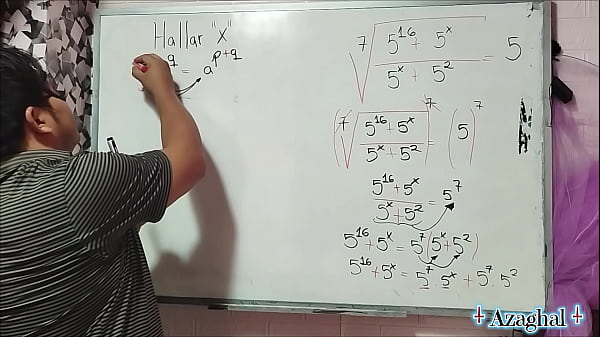 Hallar "X"
q = a^{p+q}
⁷√((5^{16} + 5^x)/(5^x + 5^2)) = 5
(⁷√((5^{16} + 5^x)/(5^x + 5^2)))^7 = (5)^7
(5^{16} + 5^x)/(5^x + 5^2) = 5^7
5^{16} + 5^x = 5^7(5^x + 5^2)
5^{16} + 5^x = 5^7 . 5^x + 5^7 . 5^2
Azaghal